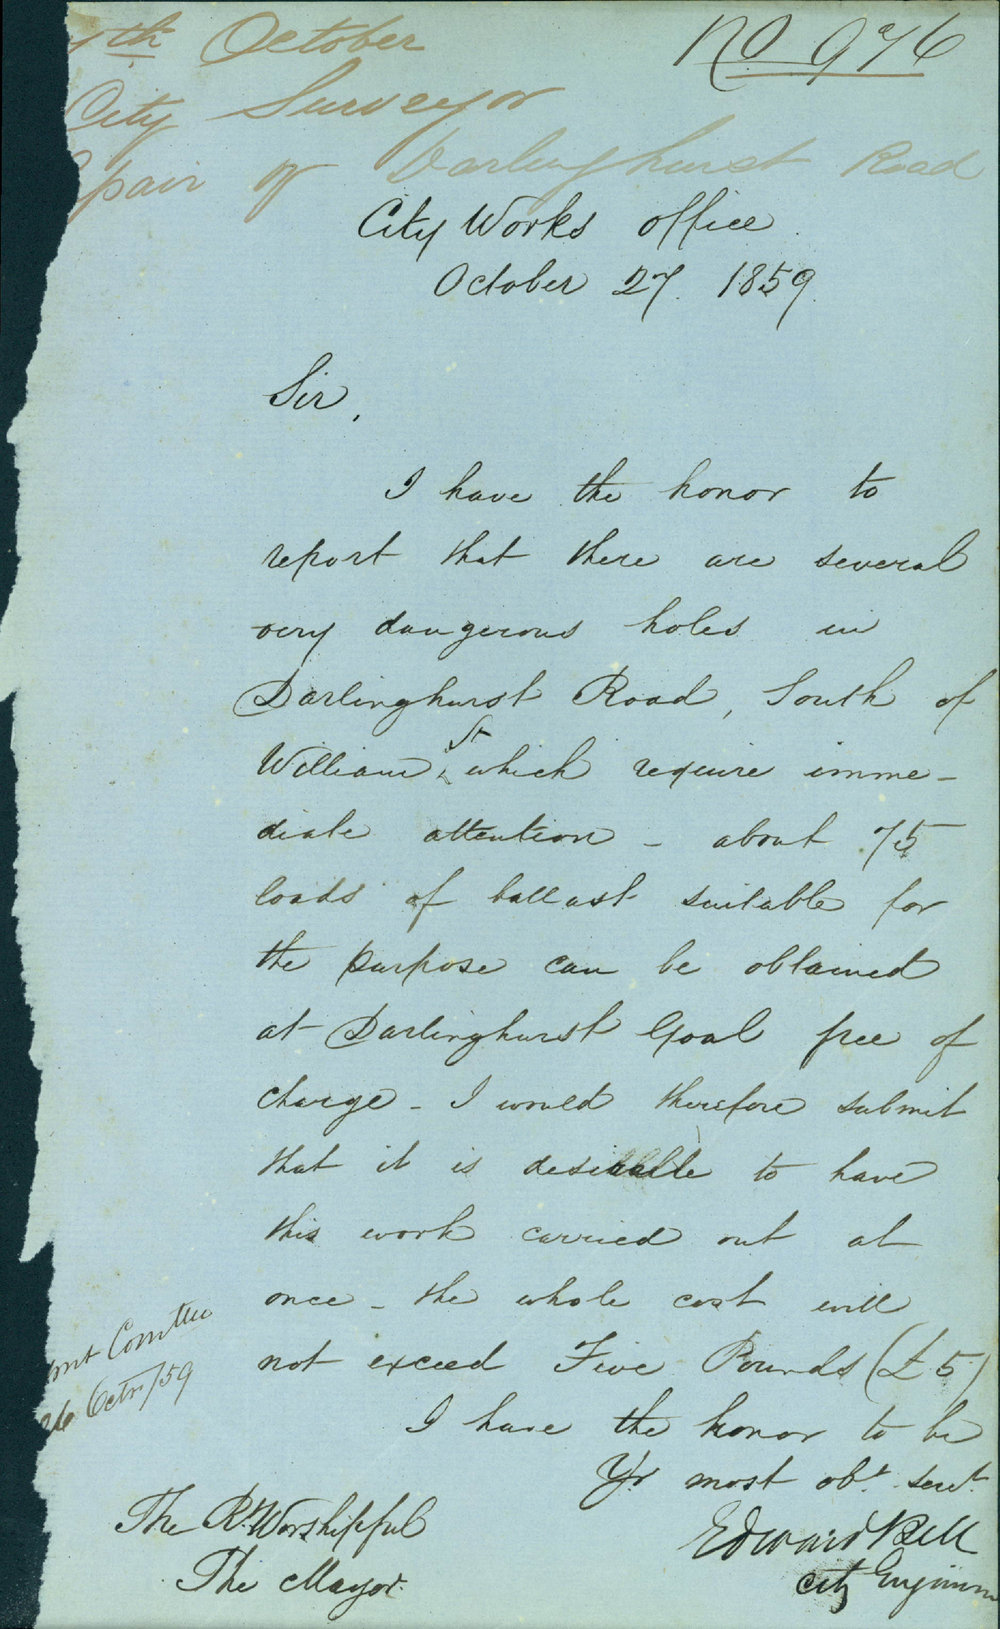 7th October
No 976
City Surveyor
epair of Darlinghurst Road
City Works office
October 27. 1859.
Sir,
I have the honor to
report that there are several
very dangerous holes in
Darlinghurst Road, South of
William St which require imme-
diate attention - about 75
loads of ballast suitable for
the purpose can be obtained
at Darlinghurst Goal free of
charge - I would therefore submit
that it is desirable to have
this work carried out at
once - the whole cost will
not exceed Five Pounds (£5)
I have the honor to be
Yr most obt. servt.
Edward Bell
City Engineer
mt Comttee
26 Octr/59
The Rt. Worshipful
The Mayor.